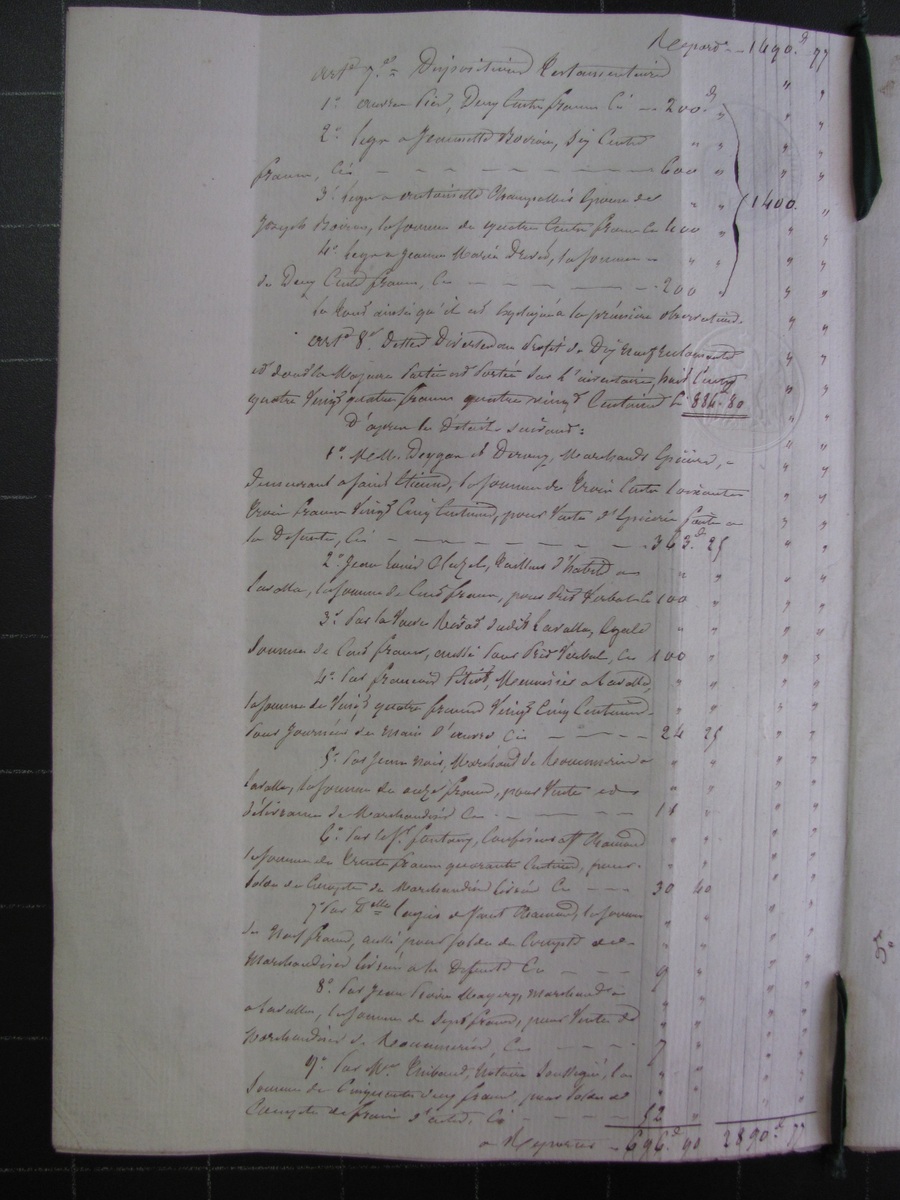 Report - 1490.f 77
art.e 7.e Dispositions testamentaires
1.o œuvres pies, Deux Cents francs Ci - 200.f
2.o legs a Jeannette, Six Cents
francs, Cis - 600
3.o legs a antoinette épouse de
Joseph, la somme de quatre Cents francs Ci 400 1400.
4.o legs a Jeanne Marie, la somme
de Deux Cents francs, Ci - 200
le tout ainsi qu'il est expliqué a la première observation.
art.e 8.e Dettes Diverses au Profit de
et dont la Majeure Partie est Portée sur l'inventaire, huit Cents
quatre vingt quatre francs quatre vingt Centimes Ci 884. 80
D'après le Détail suivant:
1.o MM. Deygas et, Marchands épiciers,
Demeurant a saint Etienne, la somme de trois Cents soixante
trois francs Vingt Cinq Centimes, pour Vente d'épicerie faite a
la Defunte, Cis - 363.f 25
2.o Jean Louis Cluzel, tailleur d'habits a
Lavalla, la somme de Cent francs, pour Prêt Verbal Ci 100
3.o Par la Veuve dudit Lavalla, égale
Somme de Cent francs, aussi Pour Prêt Verbal, Ci 100
4.o Par françois Petit, Menuisier a Lavalla,
la somme de Vingt quatre francs Vingt Cinq Centimes
Pour Journées de Main d'œuvre Cis - 24 25
5.o Par Jean, Marchand de Rouennerie a
Lavalla, la somme de onze francs, pour Vente et
délivrance de Marchandises Ci - 11
6.o Par le S.r fontany, Confiseur a S.t Chamond
la somme de trente francs quarante Centimes, pour
Solde de Compte de Marchandises livrées Ci - 30 40
7.o Par D.elle de Saint Chamond, la somme
de Neuf francs, aussi pour solde de Compte de
Marchandises livrées a la Defunte Ci - 9
8.o Par Jean Pierre Mayery, Marchand
a Lavalla, la somme de Sept francs, pour Vente de
Marchandises de Rouennerie, Ci - 7
9.o Par M.e Thibaud, Notaire Soussigné, la
Somme de Cinquante deux francs, pour Solde de
Compte de frais d'actes, Ci - 52
a Reporter - 696.f 90 2890.f 77